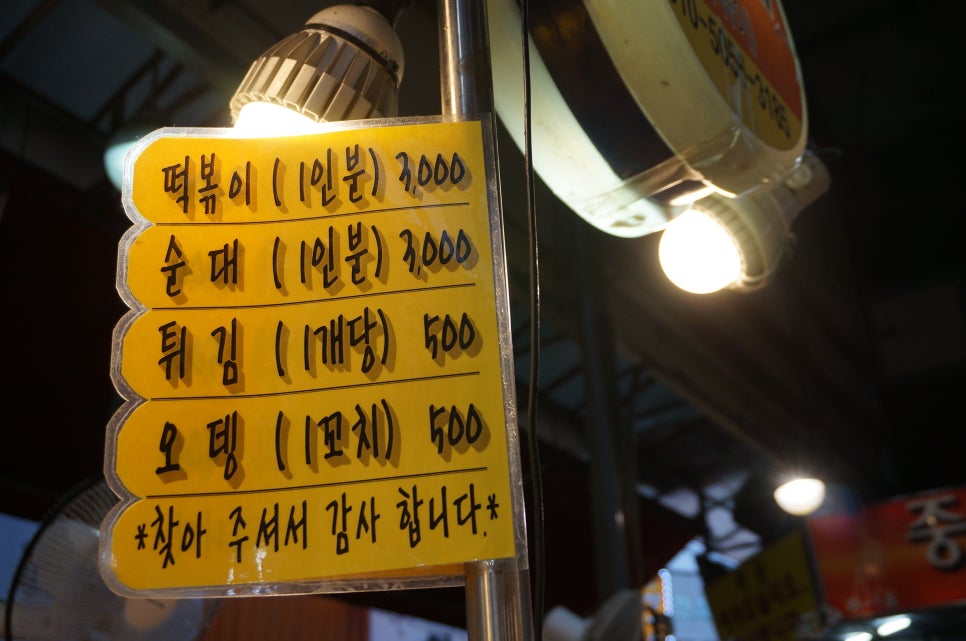 떡볶이 (1인분) 3,000
순대 (1인분) 3,000
튀김 (1개당) 500
오뎅 (1꼬치) 500
*찾아 주셔서 감사 합니다.*
010-5054-3185
중